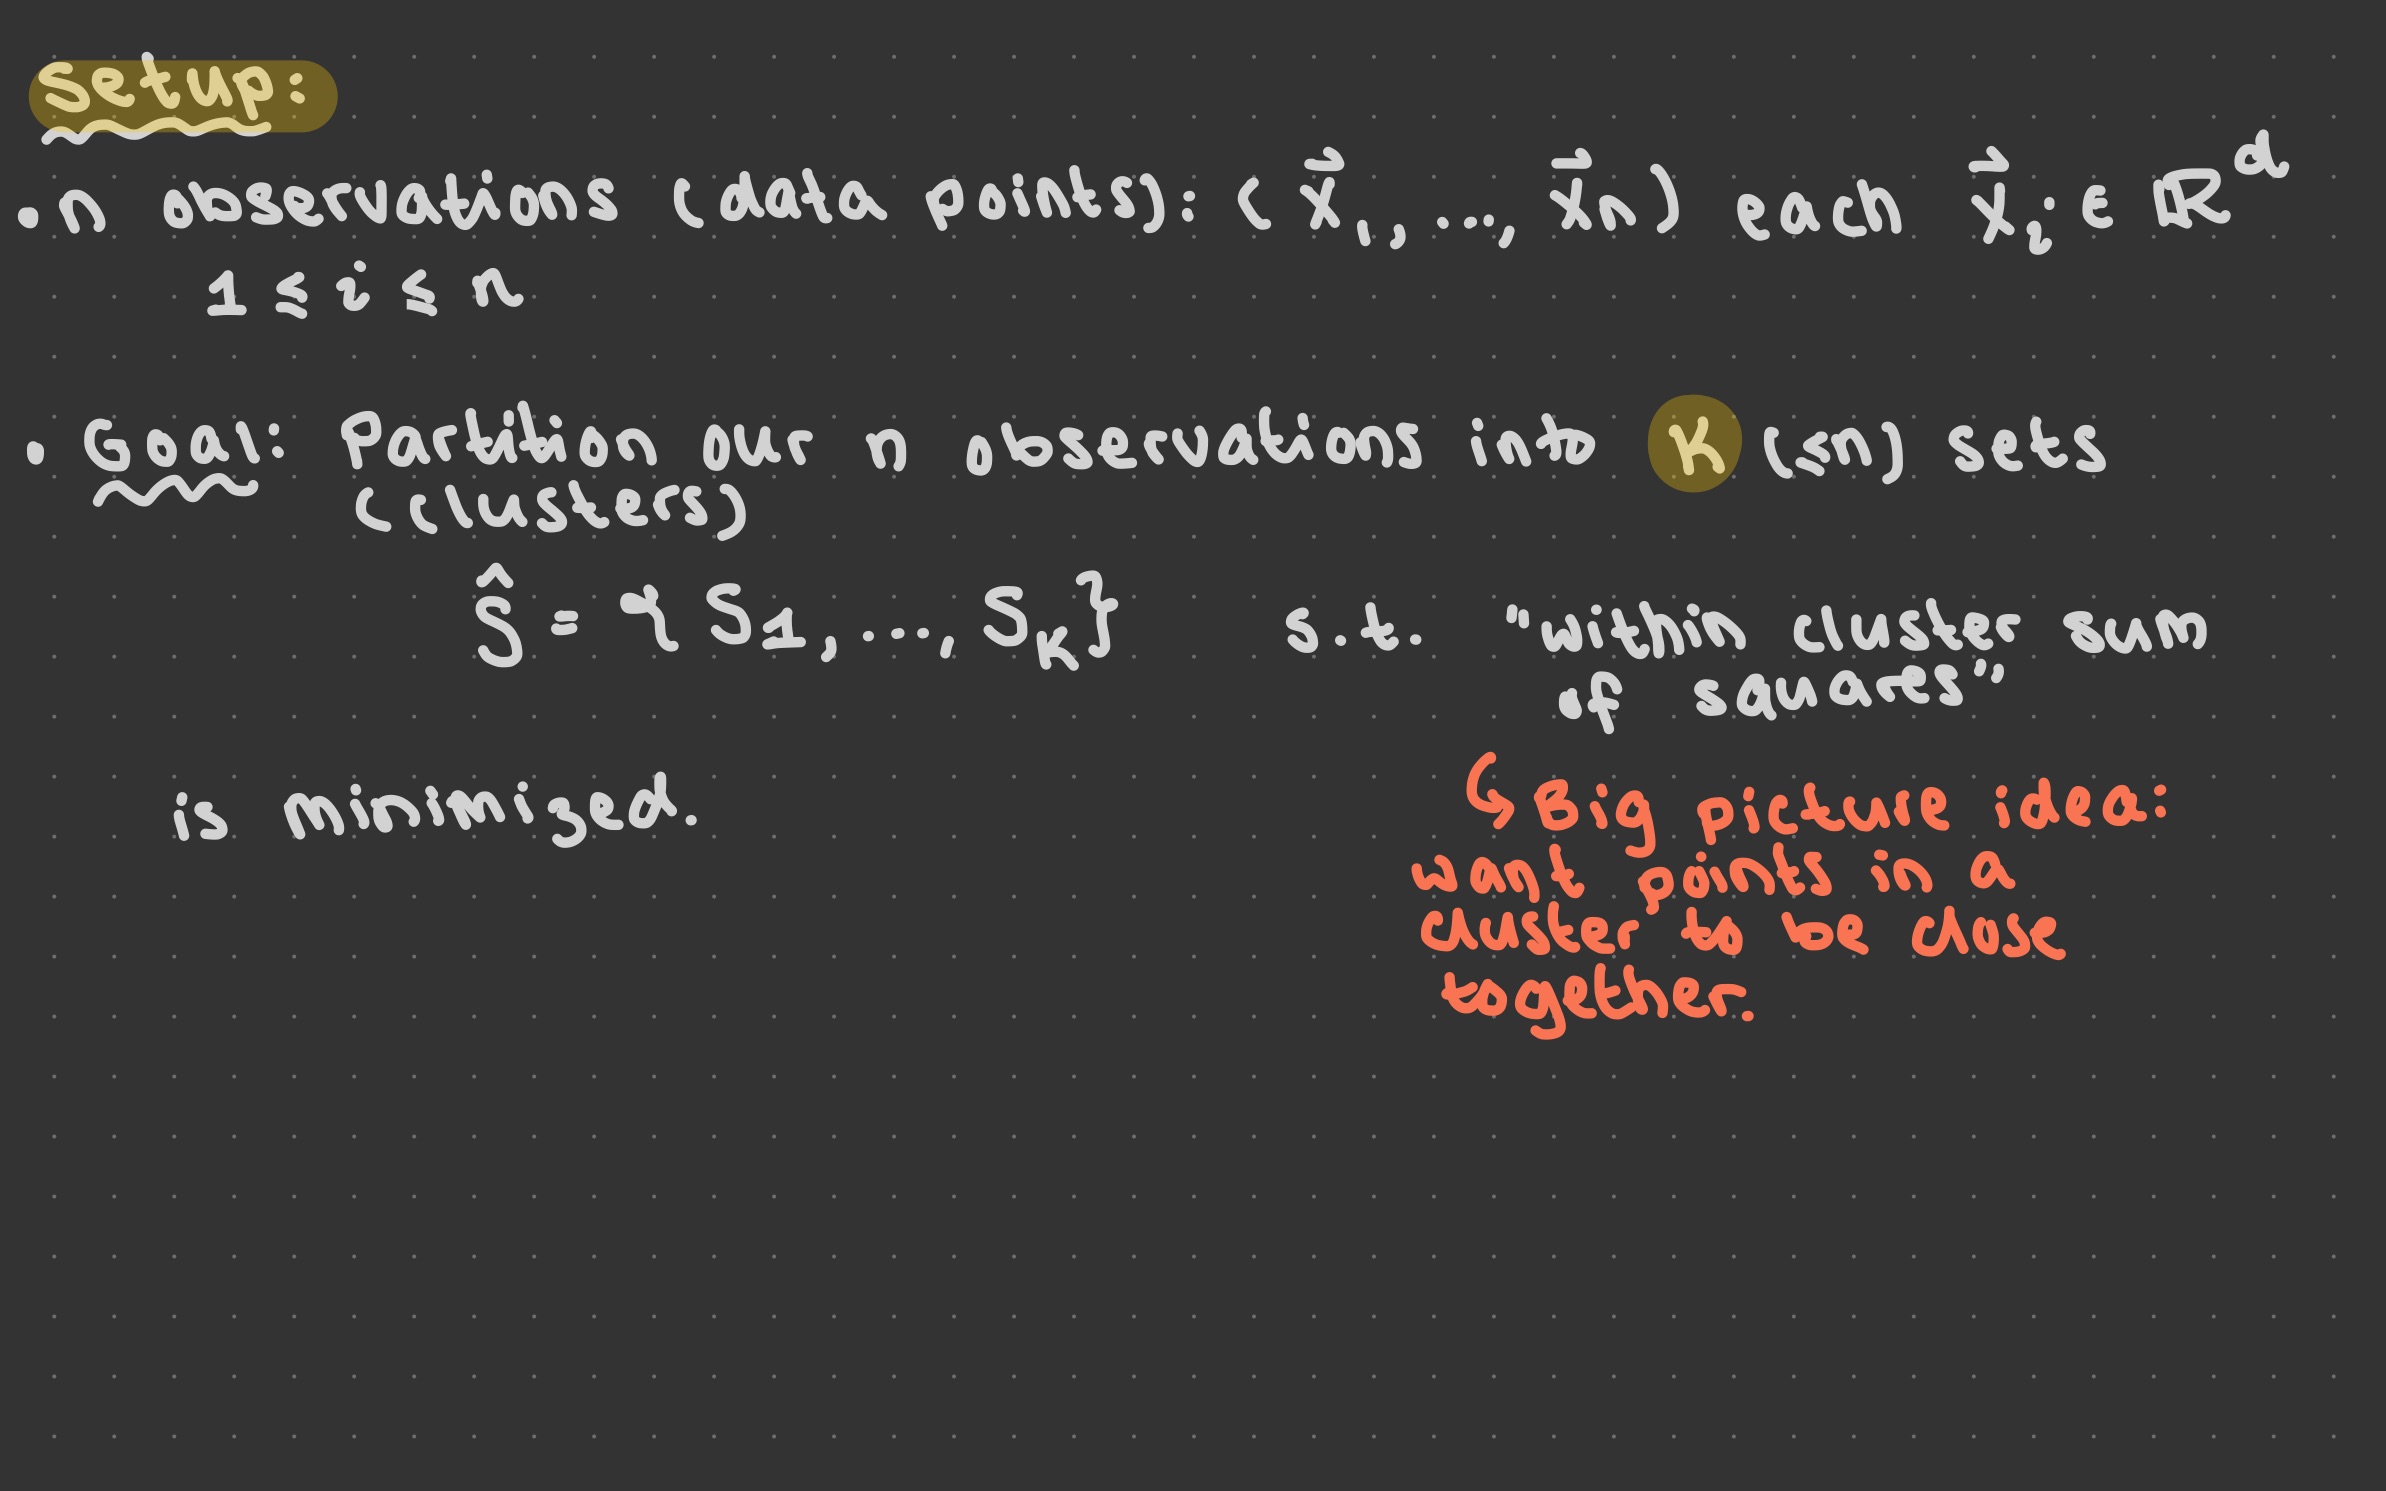 Setup:
. n observations (data points): (x⃗₁, ..., x⃗n) each x⃗ᵢ ∈ ℝᵈ
1 ≤ i ≤ n
. Goal: Partition our n observations into K (≤n) sets
(clusters)
Ŝ = { S₁, ..., Sₖ} s.t. "within cluster sum
of squares"
is minimised.
↳ Big picture idea:
want points in a
cluster to be close
together.